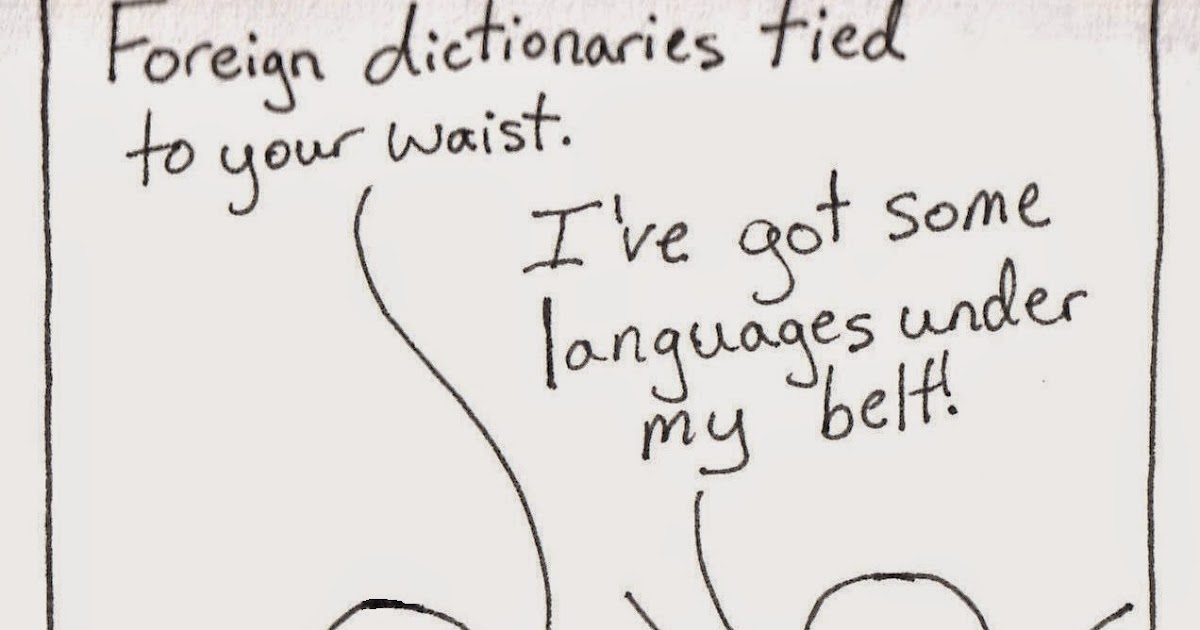 Foreign dictionaries tied
to your waist.
I've got some
languages under
my belt!